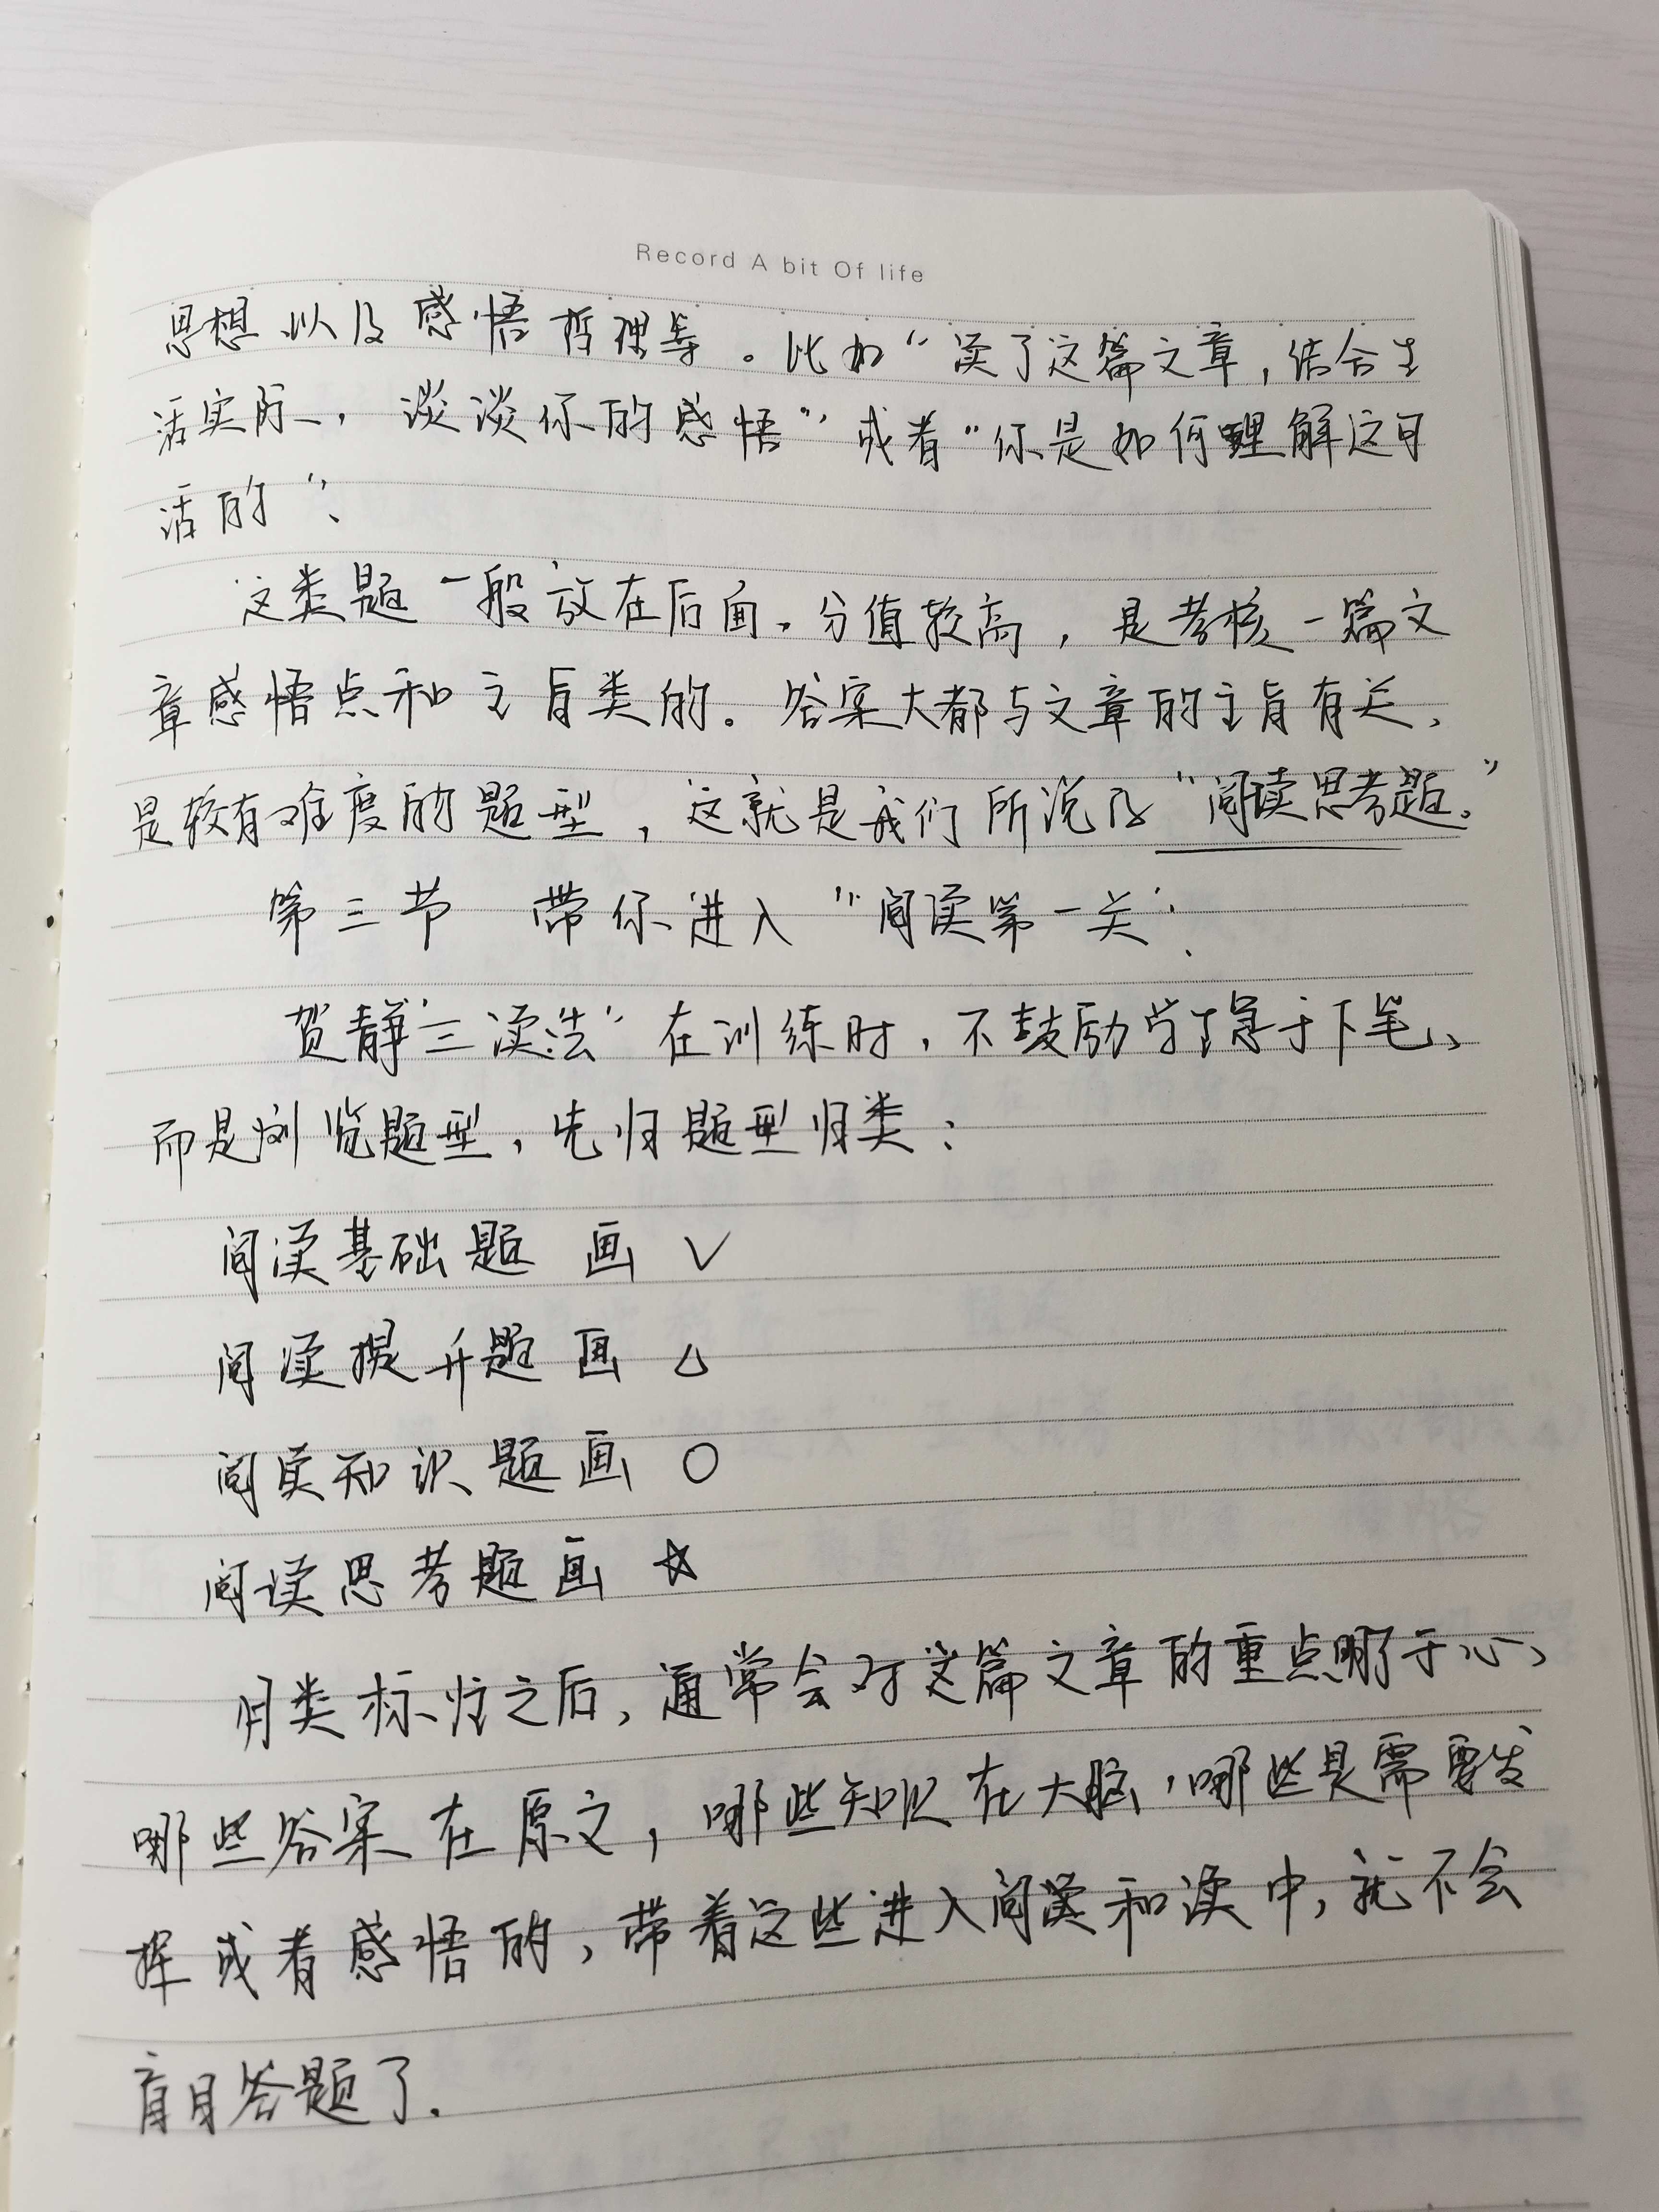 Record A bit Of life
思想以及感悟哲理等。比如“读了这篇文章,结合生
活实际,谈谈你的感悟”或者“你是如何理解这句
话的”。
这类题一般放在后面,分值较高,是考核一篇文
章感悟点和主旨类的。答案大都与文章的主旨有关,
是较有难度的题型,这就是我们所说的“阅读思考题。”
第三节 带你进入“阅读第一关”.
贺静“三读法”在训练时,不鼓励学生急于下笔,
而是浏览题型,先归题型归类:
阅读基础题 画 √
阅读提升题 画 △
阅读知识题画 ○
阅读思考题画 ☆
归类标注之后,通常会对这篇文章的重点明了于心,
哪些答案在原文,哪些知识在大脑,哪些是需要发
挥或者感悟的,带着这些进入阅读和读中,就不会
盲目答题了.